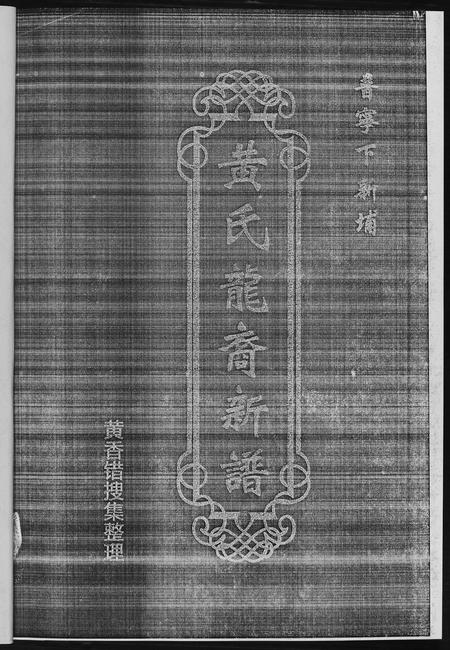 普寧下新埔
黃氏龍裔新譜
黄香错搜集整理